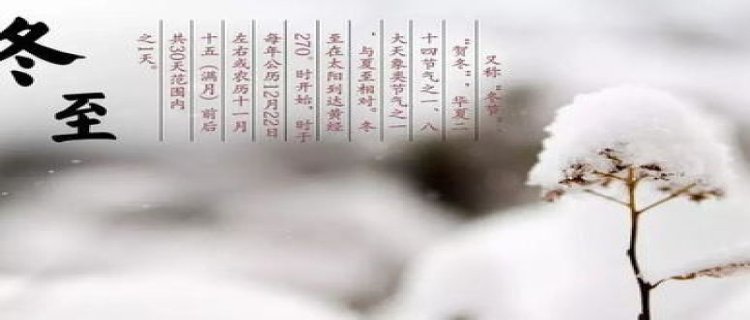 冬至
又称“冬节”、
“贺冬”，华夏二
十四节气之一、八
大天象类节气之一
，与夏至相对。冬
至在太阳到达黄经
270°时开始，时于
每年公历12月22日
左右或农历十一月
十五（满月）前后
共30天范围内
之1天。